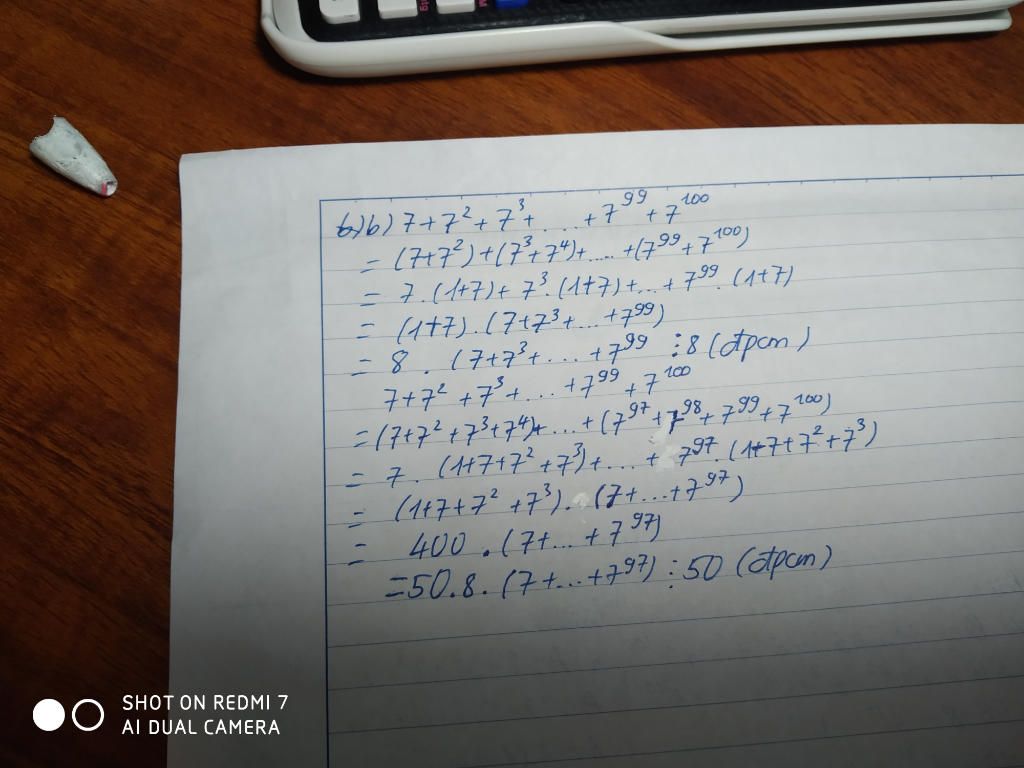 6)b) 7 + 7² + 7³ + .... + 7⁹⁹ + 7¹⁰⁰
= (7+7²) + (7³+7⁴) + ..... + (7⁹⁹ + 7¹⁰⁰)
= 7 . (1+7) + 7³ . (1+7) + ... + 7⁹⁹ . (1+7)
= (1+7) . (7+7³ + ... + 7⁹⁹)
= 8 . (7+7³ + ... + 7⁹⁹ ⋮ 8 (đpcm)
7+7² + 7³ + .... + 7⁹⁹ + 7¹⁰⁰
= (7+7² + 7³+7⁴) + ... + (7⁹⁷ + 7⁹⁸ + 7⁹⁹ + 7¹⁰⁰)
= 7 . (1+7+7² + 7³) + .... + 7⁹⁷ . (1+7+7² + 7³)
= (1+7+7² + 7³) . (7 + ... + 7⁹⁷)
= 400 . (7 + ... + 7⁹⁷)
= 50.8. (7 + ... + 7⁹⁷) ⋮ 50 (đpcm)
SHOT ON REDMI 7
AI DUAL CAMERA